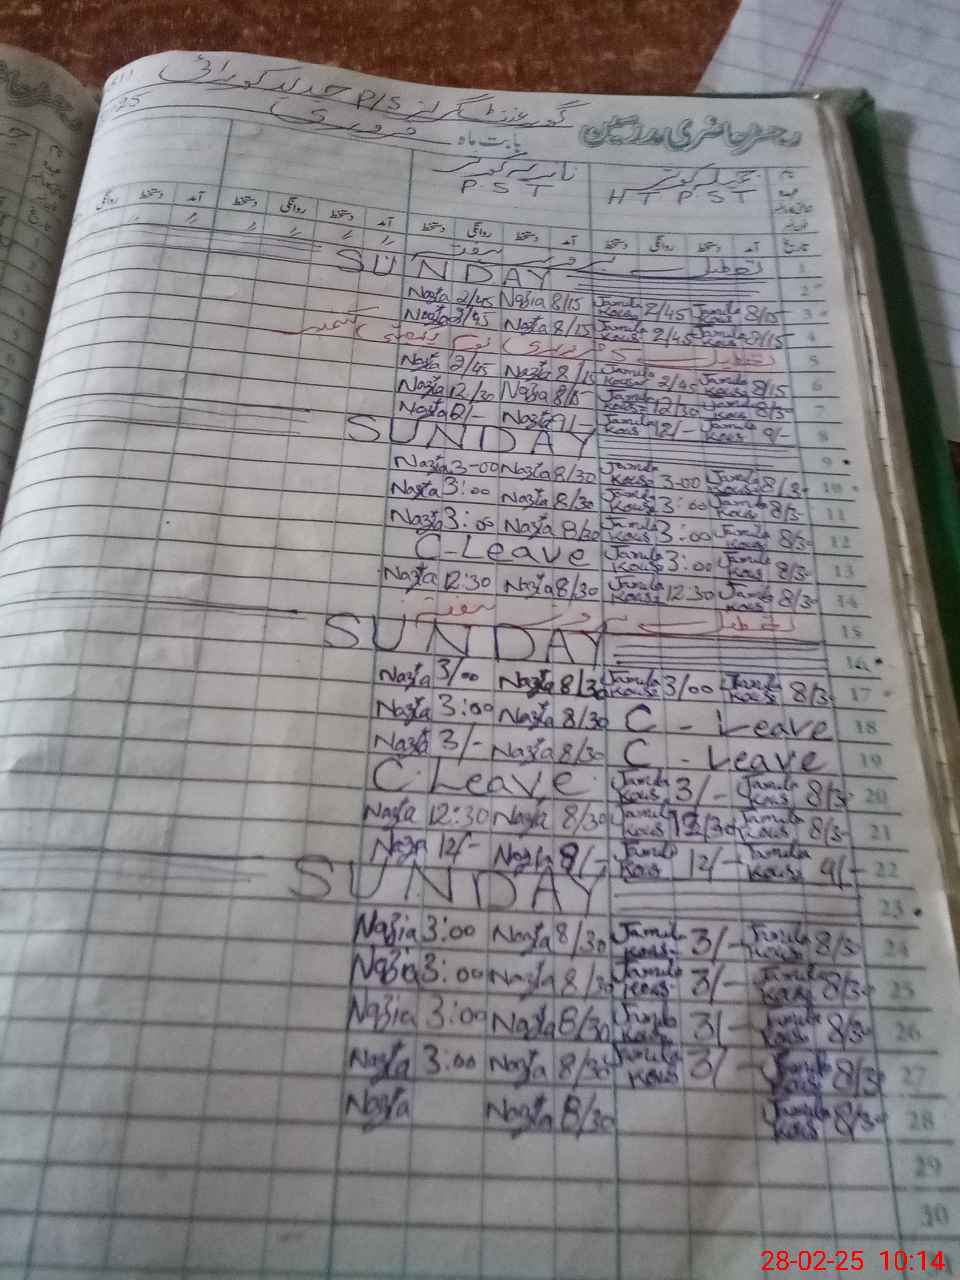 رجسٹر حاضری مدرسین گورنمنٹ گرلز P/S
بابت ماہ فروری 25
جمیلہ کوثر نازیہ کوثر
H T P S T P S T
تاریخ آمد دستخط روانگی دستخط آمد دستخط روانگی دستخط آمد دستخط روانگی دستخط آمد دستخط روانگی
1 تعطیل
2 SUNDAY
3 Jamila Kousr 8/15 Jamila Kousr 2/45 Nazia 8/15 Nazia 2/45
4 Jamila Kousr 8/15 Jamila Kousr 2/45 Nazia 8/15 Nazia 2/45
5 تعطیل 5 فروری یوم یکجہتی کشمیر
6 Jamila Kousr 8/15 Jamila Kousr 2/45 Nazia 8/15 Nazia 2/45
7 Jamila Kousr 8/3- Jamila Kousr 12/30 Nazia 8/15 Nazia 12/30
8 Jamila Kousr 9/- Jamila Kousr 12/- Nazia 9/- Nazia
9 SUNDAY
10 Jamila Kousr 8/3- Jamila Kousr 3-00 Nazia 8/30 Nazia 3-00
11 Jamila Kousr 8/3- Jamila Kousr 3:00 Nazia 8/30 Nazia 3:00
12 Jamila Kousr 8/3- Jamila Kousr 3:00 Nazia 8/30 Nazia 3:00
13 Jamila Kousr 8/3- Jamila Kousr 3:00 C-Leave
14 Jamila Kousr 8/3- Jamila Kousr 12:30 Nazia 8/30 Nazia 12:30
15 تعطیل
16 SUNDAY
17 Jamila Kousr 8/3- Jamila Kousr 3/00 Nazia 8/30 Nazia 3/00
18 C - Leave Nazia 8/30 Nazia 3:00
19 C - Leave Nazia 8/30 Nazia 3/-
20 Jamila Kousr 8/3- Jamila Kousr 3/- C-Leave
21 Jamila Kousr 8/3- Jamila Kousr 12/30 Nazia 8/30 Nazia 12:30
22 Jamila Kousr 9/- Jamila Kousr 12/- Nazia 9/- Nazia 12/-
23 SUNDAY
24 Jamila Kousr 8/3- Jamila Kousr 3/- Nazia 8/30 Nazia 3:00
25 Jamila Kousr 8/3- Jamila Kousr 3/- Nazia 8/30 Nazia 3:00
26 Jamila Kousr 8/3- Jamila Kousr 3/- Nazia 8/30 Nazia 3:00
27 Jamila Kousr 8/3- Jamila Kousr 3/- Nazia 8/30 Nazia 3:00
28 Jamila Kousr 8/3- Nazia 8/30 Nazia
29
30
28-02-25 10:14